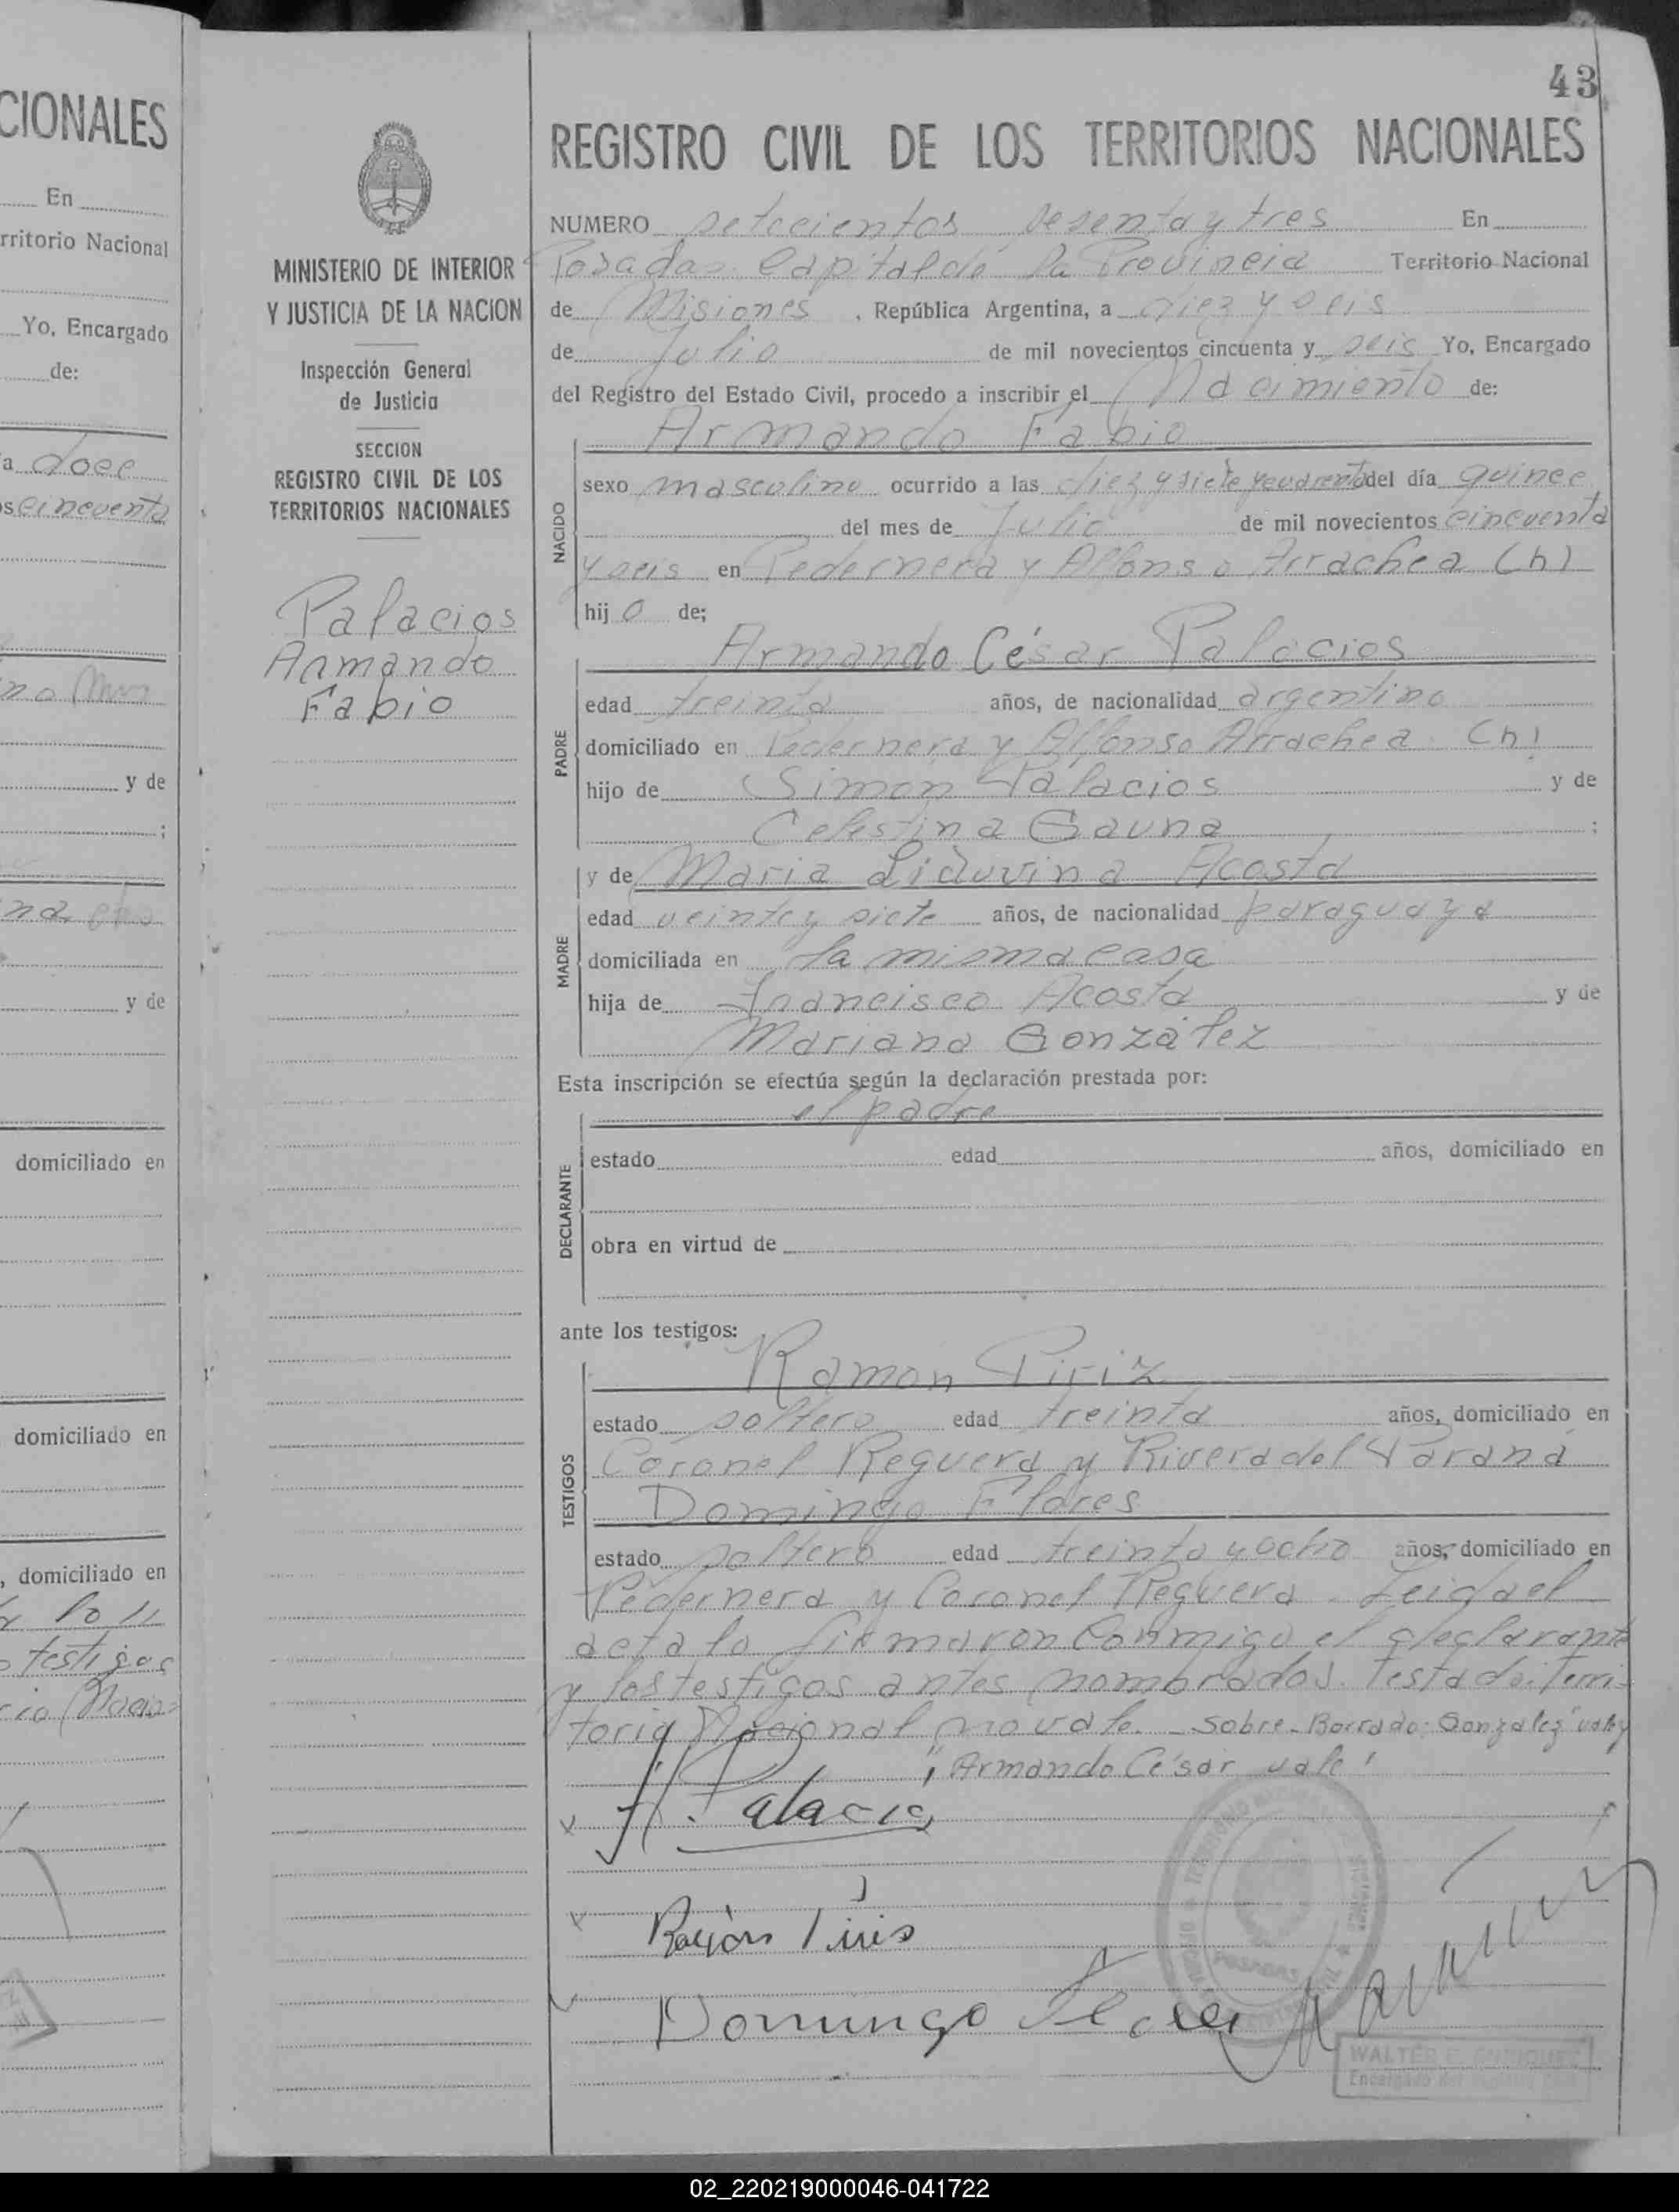 CIONALES
En
rritorio Nacional
Yo, Encargado
de:
a doce
s cincuenta
y de
;
y de
domiciliado en
domiciliado en
, domiciliado en
testigos
MINISTERIO DE INTERIOR
Y JUSTICIA DE LA NACION
Inspección General
de Justicia
SECCION
REGISTRO CIVIL DE LOS
TERRITORIOS NACIONALES
Palacios
Armando
Fabio
43
REGISTRO CIVIL DE LOS TERRITORIOS NACIONALES
NUMERO setecientos sesenta y tres En
Posadas Capital de la Provincia Territorio Nacional
de Misiones , República Argentina, a diez y seis
de Julio de mil novecientos cincuenta y seis Yo, Encargado
del Registro del Estado Civil, procedo a inscribir el Nacimiento de:
Armando Fabio
NACIDO
sexo masculino ocurrido a las diez y siete y cuarenta del día quince
del mes de Julio de mil novecientos cincuenta
y seis en Pedernera y Alfonso Arrachea (h)
hijo de;
Armando César Palacios
PADRE
edad treinta años, de nacionalidad argentino
domiciliado en Pedernera y Alfonso Arrachea (h)
hijo de Simon Palacios y de
Celestina Gauna ;
y de Maria Liduvina Acosta
MADRE
edad veinte y siete años, de nacionalidad paraguaya
domiciliada en la misma casa
hija de Francisco Acosta y de
Mariana González
Esta inscripción se efectúa según la declaración prestada por:
el padre
DECLARANTE
estado edad años, domiciliado en
obra en virtud de
ante los testigos:
Ramon Piriz
TESTIGOS
estado soltero edad treinta años, domiciliado en
Coronel Reguera y Rivera del Paraná
Domingo Flores
estado soltero edad treinta y ocho años, domiciliado en
Pedernera y Coronel Reguera. Leida el
acta la firmaron conmigo el declarante
y los testigos antes nombrados. Testado: Terri-
torio Nacional no vale. - Sobre-Borrado: Gonzalez "vale"
" Armando César vale"
A. Palacios
Ramón Piris
Domingo Flores
POSADAS
WALTER E. ENRIQUEZ
Encargado del Registro Civil
02_220219000046-041722